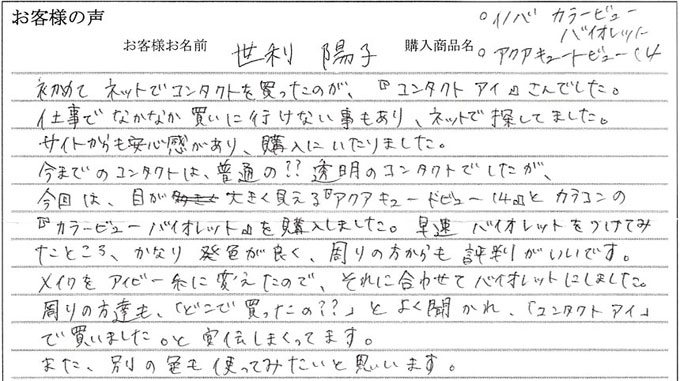 お客様の声
お客様お名前 世利 陽子 購入商品名
○イノバ カラービュー
バイオレット
○アクアキュートビュー14
初めて ネットでコンタクトを買ったのが、『コンタクトアイ』さんでした。
仕事で なかなか買いに行けない事もあり、ネットで探してました。
サイトからも安心感があり、購入にいたりました。
今までのコンタクトは、普通の?? 透明のコンタクトでしたが、
今回は、目が 大きく見える『アクアキュートビュー14』と カラコンの
『カラービュー バイオレット』を購入しました。早速 バイオレットをつけてみ
たところ、かなり 発色が良く、周りの方からも 評判がいいです。
メイクを アイビー系に変えたので、それに合わせて バイオレットにしました。
周りの方達も、「どこで買ったの??」と よく聞かれ、「コンタクトアイ」
で買いました。と 宣伝しまくってます。
また、別の色も使ってみたいと思いいます。